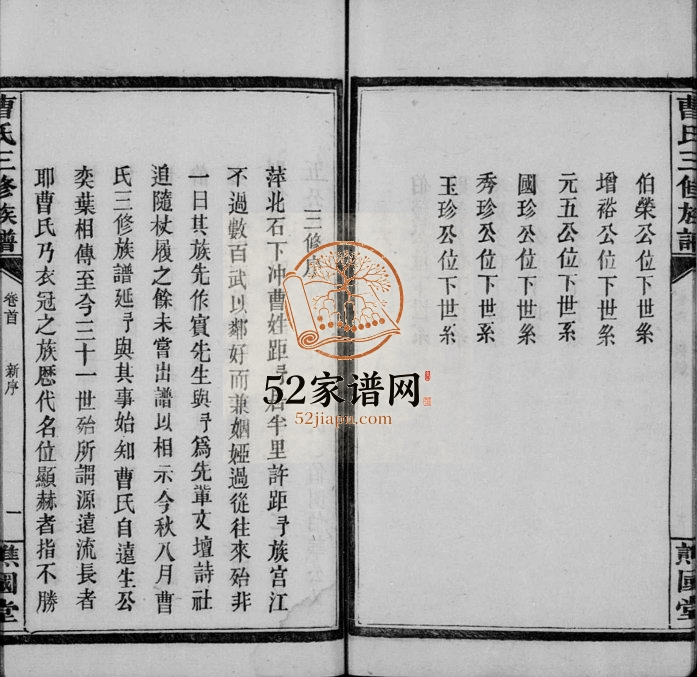 曹氏三修族譜
譙國堂
伯榮公位下世系
增裕公位下世系
元五公位下世系
國珍公位下世系
秀珍公位下世系
玉珍公位下世系
三修序
萍北石下冲曹姓距予居半里許距予族宫江
不過數百武以鄰好而兼姻婭過從往來殆非
一日其族先作賓先生與予爲先輩文壇詩社
追隨杖履之餘未嘗出譜以相示今秋八月曹
氏三修族譜延予與其事始知曹氏自遠生公
奕葉相傳至今三十一世殆所謂源遠流長者
耶曹氏乃衣冠之族歷代名位顯赫者指不勝
曹氏三修族譜
卷首
新序
一
譙國堂
52家谱网
52jiapu.com